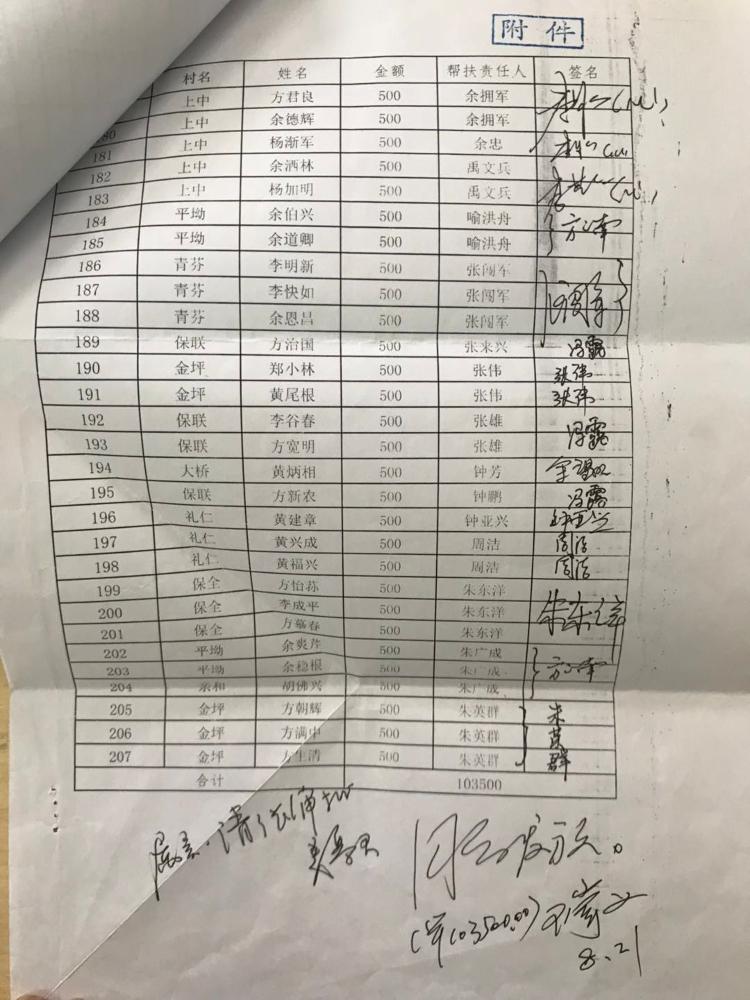 附件
村名 姓名 金额 帮扶责任人 签名
上中 方君良 500 余拥军
上中 余德辉 500 余拥军
181 上中 杨渐军 500 余忠
182 上中 余洒林 500 禹文兵
183 上中 杨加明 500 禹文兵
184 平坳 余伯兴 500 喻洪舟
185 平坳 余道卿 500 喻洪舟
186 青芬 李明新 500 张闯军
187 青芬 李快如 500 张闯军
188 青芬 余恩昌 500 张闯军
189 保联 方治国 500 张来兴 冯露
190 金坪 郑小林 500 张伟 张伟
191 金坪 黄尾根 500 张伟 张伟
192 保联 李谷春 500 张雄
193 保联 方宽明 500 张雄 冯露
194 大桥 黄炳相 500 钟芳
195 保联 方新农 500 钟鹏 冯露
196 礼仁 黄建章 500 钟亚兴 钟亚兴
197 礼仁 黄兴成 500 周洁 周洁
198 礼仁 黄福兴 500 周洁 周洁
199 保全 方怡荪 500 朱东洋
200 保全 李成平 500 朱东洋 朱东洋
201 保全 500 朱东洋
202 平坳 余爽芹 500 朱广成
203 平坳 余稳根 500 朱广成
204 亲和 胡佛兴 500 朱广成
205 金坪 方朝辉 500 朱英群 朱
206 金坪 方满中 500 朱英群 英
207 金坪 方生清 500 朱英群 群
合计 103500
8.21